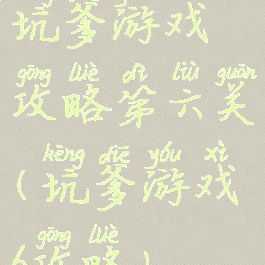 坑爹游戏
gōng lüè dì liù guān
攻略第六关
kēng diē yóu xì
(坑爹游戏
gōng lüè
攻略)